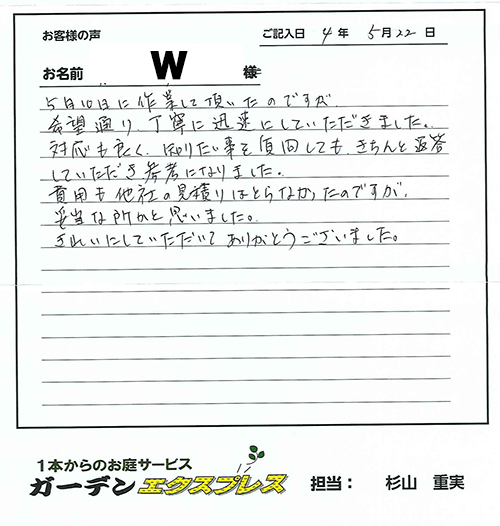 お客様の声
ご記入日 4年 5月22日
お名前 W 様
5月10日に作業して頂いたのですが、
希望通り、丁寧に迅速にしていただきました。
対応も良く、知りたい事を質問しても、きちんと返答
していただき参考になりました。
費用も他社の見積りはとらなかったのですが、
妥当な所かと思いました。
きれいにしていただいてありがとうございました。
1本からのお庭サービス
ガーデンエクスプレス 担当： 杉山 重実